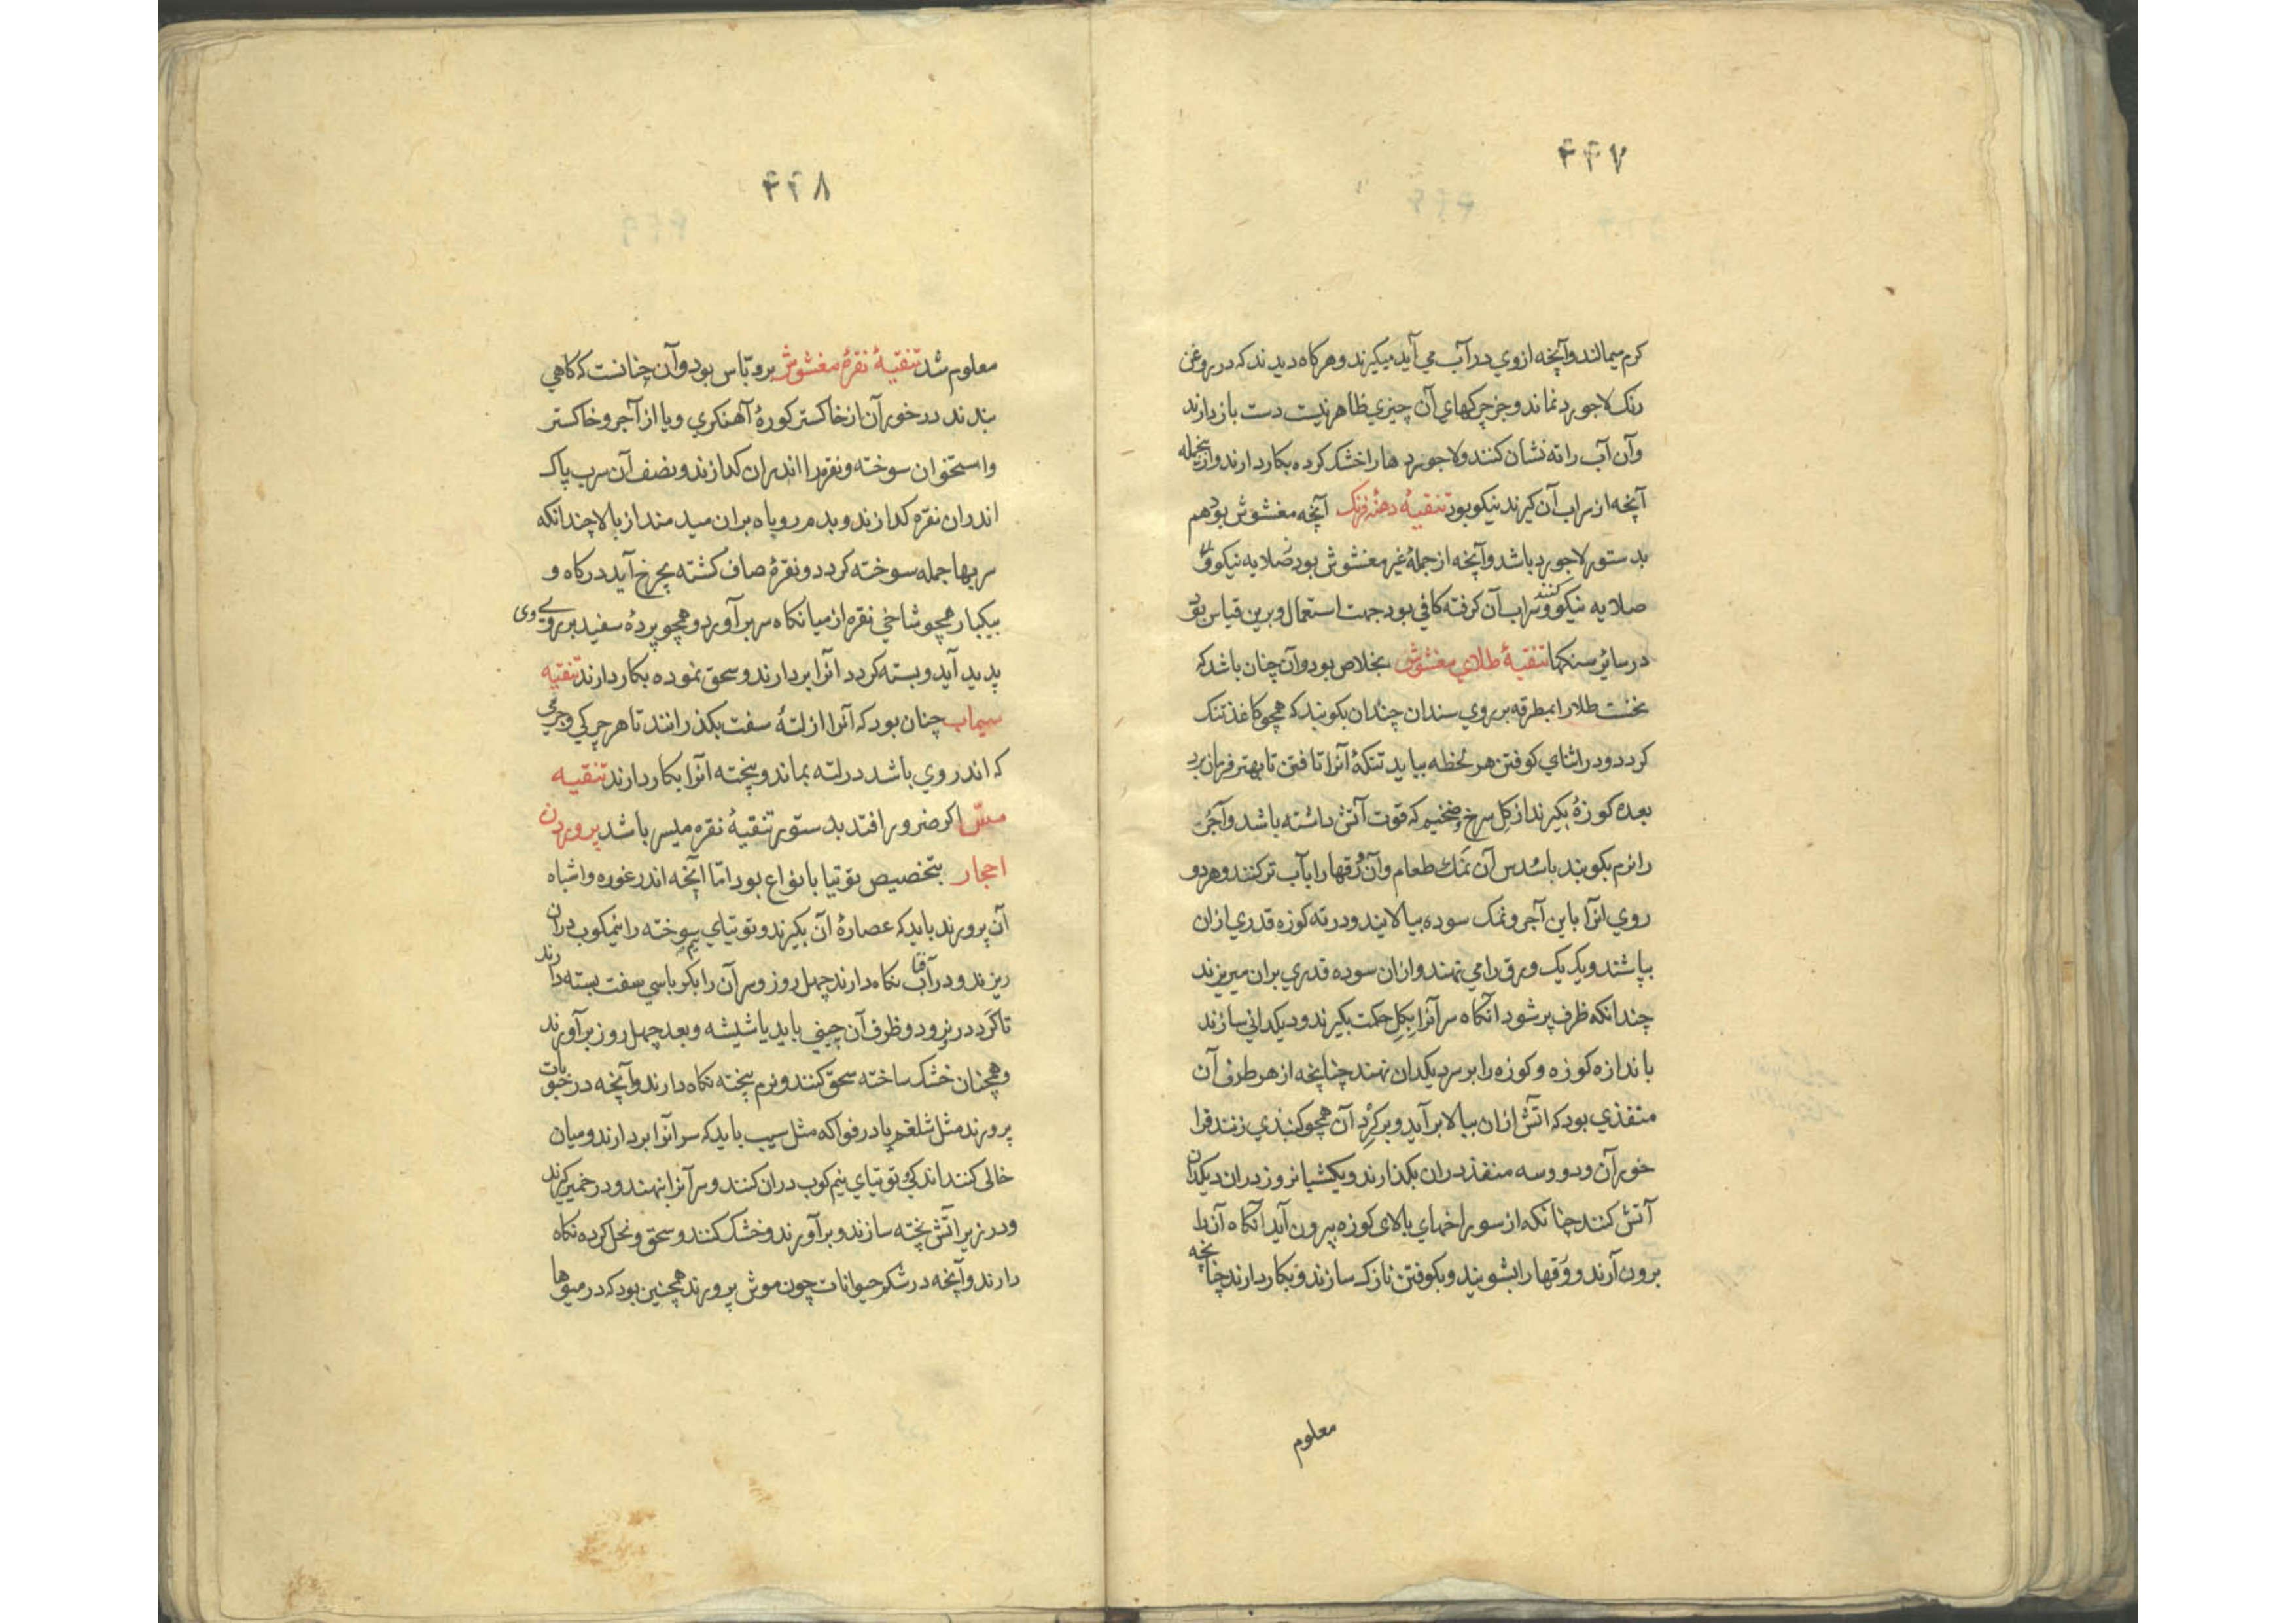 ۴۴۷
کرم میمالند و آنچه ازوي در آب مي آید میکیرند و هرکاه دیدند که در روغن
رنک لاجورد نماند و جز چرکهاي آن چیزي ظاهر نیست دست بازدارند
وآن آب را ته نشان کنند و لاجوردها را خشک کرده بکار دارند و ازینجمله
آنچه از سراب آن کیرند نیکو بود تنقیهٔ دهنهٔ فرنک آنچه مغشوش بود هم
بدستور لاجورد باشد و آنچه از جملهٔ غیر مغشوش بود صلایه نیکو و
صلایه نیکو و کنند سراب آن کرفته کافي بود جهت استعمال و برین قیاس بود
در سائر سنکها تنقیهٔ طلاي مغشوش بخلاص بود و آن چنان باشد که
نخست طلا را بمطرقه بر روي سندان چندان بکوبند که همچو کاغذ تنک
کردد و در اثناي کوفتن هر لحظه بباید تنکهٔ آنرا تافتن تا بهتر فرمان برد
بعده کوزهٔ بکیرند از کل سرخ و ضخیم که قوت آتش داشته باشد و آجر
را نرم بکوبند با سُدس آن نمک طعام و آن ورقها را بآب تر کنند و هر دو
روي انرا باین آجر و نمک سوده بیالایند و در ته کوزه قدري ازان
بپاشند و یک یک ورق را مي نهند و ازان سوده قدري بران میریزند
چندانکه ظرف پر شود آنکاه سر آنرا بکل حکمت بکیرند و دیکداني سازند
باندازه کوزه و کوزه را بر سر دیکدان نهند چنانچه از هر طرف آن
منفذي بود که اتش ازان ببالا برآید و بر کرد آن همچو کنبذي زنند فرا
خور آن و دو و سه منفذ دران بکذارند و یکشبانروز دران دیکدان
آتش کنند چنانکه از سوراخهاي بالای کوزه بیرون آید آنکاه آنرا
برون آرند و ورقها را بشویند و بکوفتن نازک سازند و بکار دارند چنانچه
معلوم
۴۴۸
معلوم شد تنقیهٔ نقرهٔ مغشوش بروباس بود و آن چنانست که کاهي
بندند در خور آن از خاکستر کورهٔ آهنکري و یا از آجر و خاکستر
و استخوان سوخته و نقره را اندران کدازند و نصف آن سرب پاک
اندران نقره کدازند و بدم روباه بران میدمند از بالا چندانکه
سربها جمله سوخته کردد و نقرهٔ صاف کشته بچرخ آید در کاه و
بیکبار همچو شاخي نقره از میان کاه سر برآورد و همچو پردهٔ سفید بر روي وی
پدید آید و بسته کردد انرا بردارند و سحق نموده بکار دارند تنقیه
سیماب چنان بود که آنرا از لتهٔ سفت بکذرانند تا هر چرکي و جرمي
که اندروي باشد در لته بماند و پخته انرا بکار دارند تنقیه
مسّ اکر ضرور افتد بدستور تنقیهٔ نقره میسر باشد پروردن
احجار بتخصیص توتیا بانواع بود امّا آنچه اندر غوره و اشباه
آن پرورند باید که عصارهٔ آن بکیرند و توتیاي سوخته را نیمکوب دران
ریزند و در آفتاب نکاه دارند چهل روز و سر آن را بکرباسي سفت بسته دارند
تا کرد در نرود و ظرف آن چیني باید یا شیشه و بعد چهل روز برآورند
و همچنان خشک ساخته سحق کنند و نرم پخته نکاه دارند و آنچه در حبوبات
پرورند مثل شلغم یا در فواکه مثل سیب باید که سر آنرا بردارند و میان
خالی کنند اندکي توتیاي نیم کوب دران کنند و سر آنرا نهند و در خمیر کیرند
و در زیر آتش پخته سازند و برآورند و خشک کنند و سحق و نخل کرده نکاه
دارند و آنچه در شکم حیوانات چون موش پرورند همچنین بود که در میوها